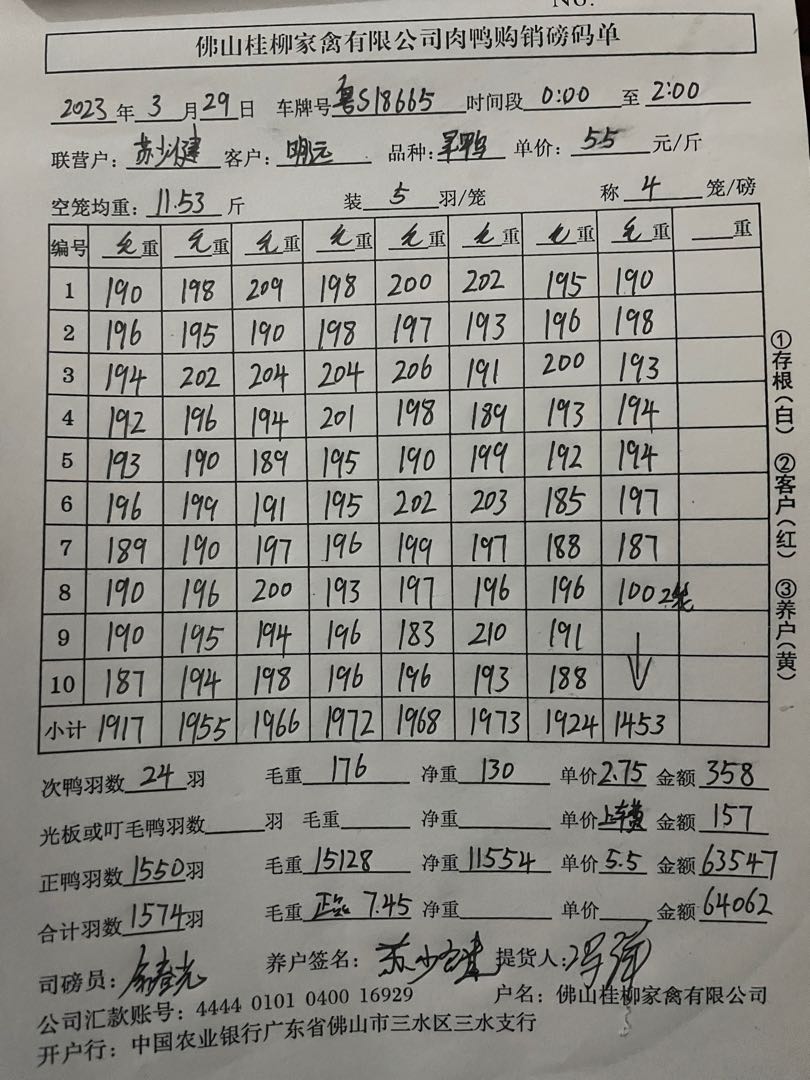 No.
佛山桂柳家禽有限公司肉鸭购销磅码单
2023年3月29日 车牌号粤S18665 时间段0:00至2:00
联营户：苏少健 客户：明远 品种： 单价：5.5元/斤
空笼均重：11.53斤 装5羽/笼 称4笼/磅
编号 毛重 毛重 毛重 毛重 毛重 毛重 毛重 毛重 重
1 190 198 209 198 200 202 195 190
2 196 195 190 198 197 193 196 198
3 194 202 204 204 206 191 200 193
4 192 196 194 201 198 189 193 194
5 193 190 189 195 190 199 192 194
6 196 199 191 195 202 203 185 197
7 189 190 197 196 199 197 188 187
8 190 196 200 193 197 196 196 100 2笼
9 190 195 194 196 183 210 191
10 187 194 198 196 196 193 188
小计 1917 1955 1966 1972 1968 1973 1924 1453
次鸭羽数24羽 毛重176 净重130 单价2.75 金额358
光板或叮毛鸭羽数羽 毛重 净重 单价上车费 金额157
正鸭羽数1550羽 毛重15128 净重11554 单价5.5 金额63547
合计羽数1574羽 毛重正品 7.45 净重 单价 金额64062
司磅员： 养户签名：苏少健 提货人：
公司汇款账号：4444 0101 0400 16929 户名：佛山桂柳家禽有限公司
开户行：中国农业银行广东省佛山市三水区三水支行
①存根(白) ②客户(红) ③养户(黄)